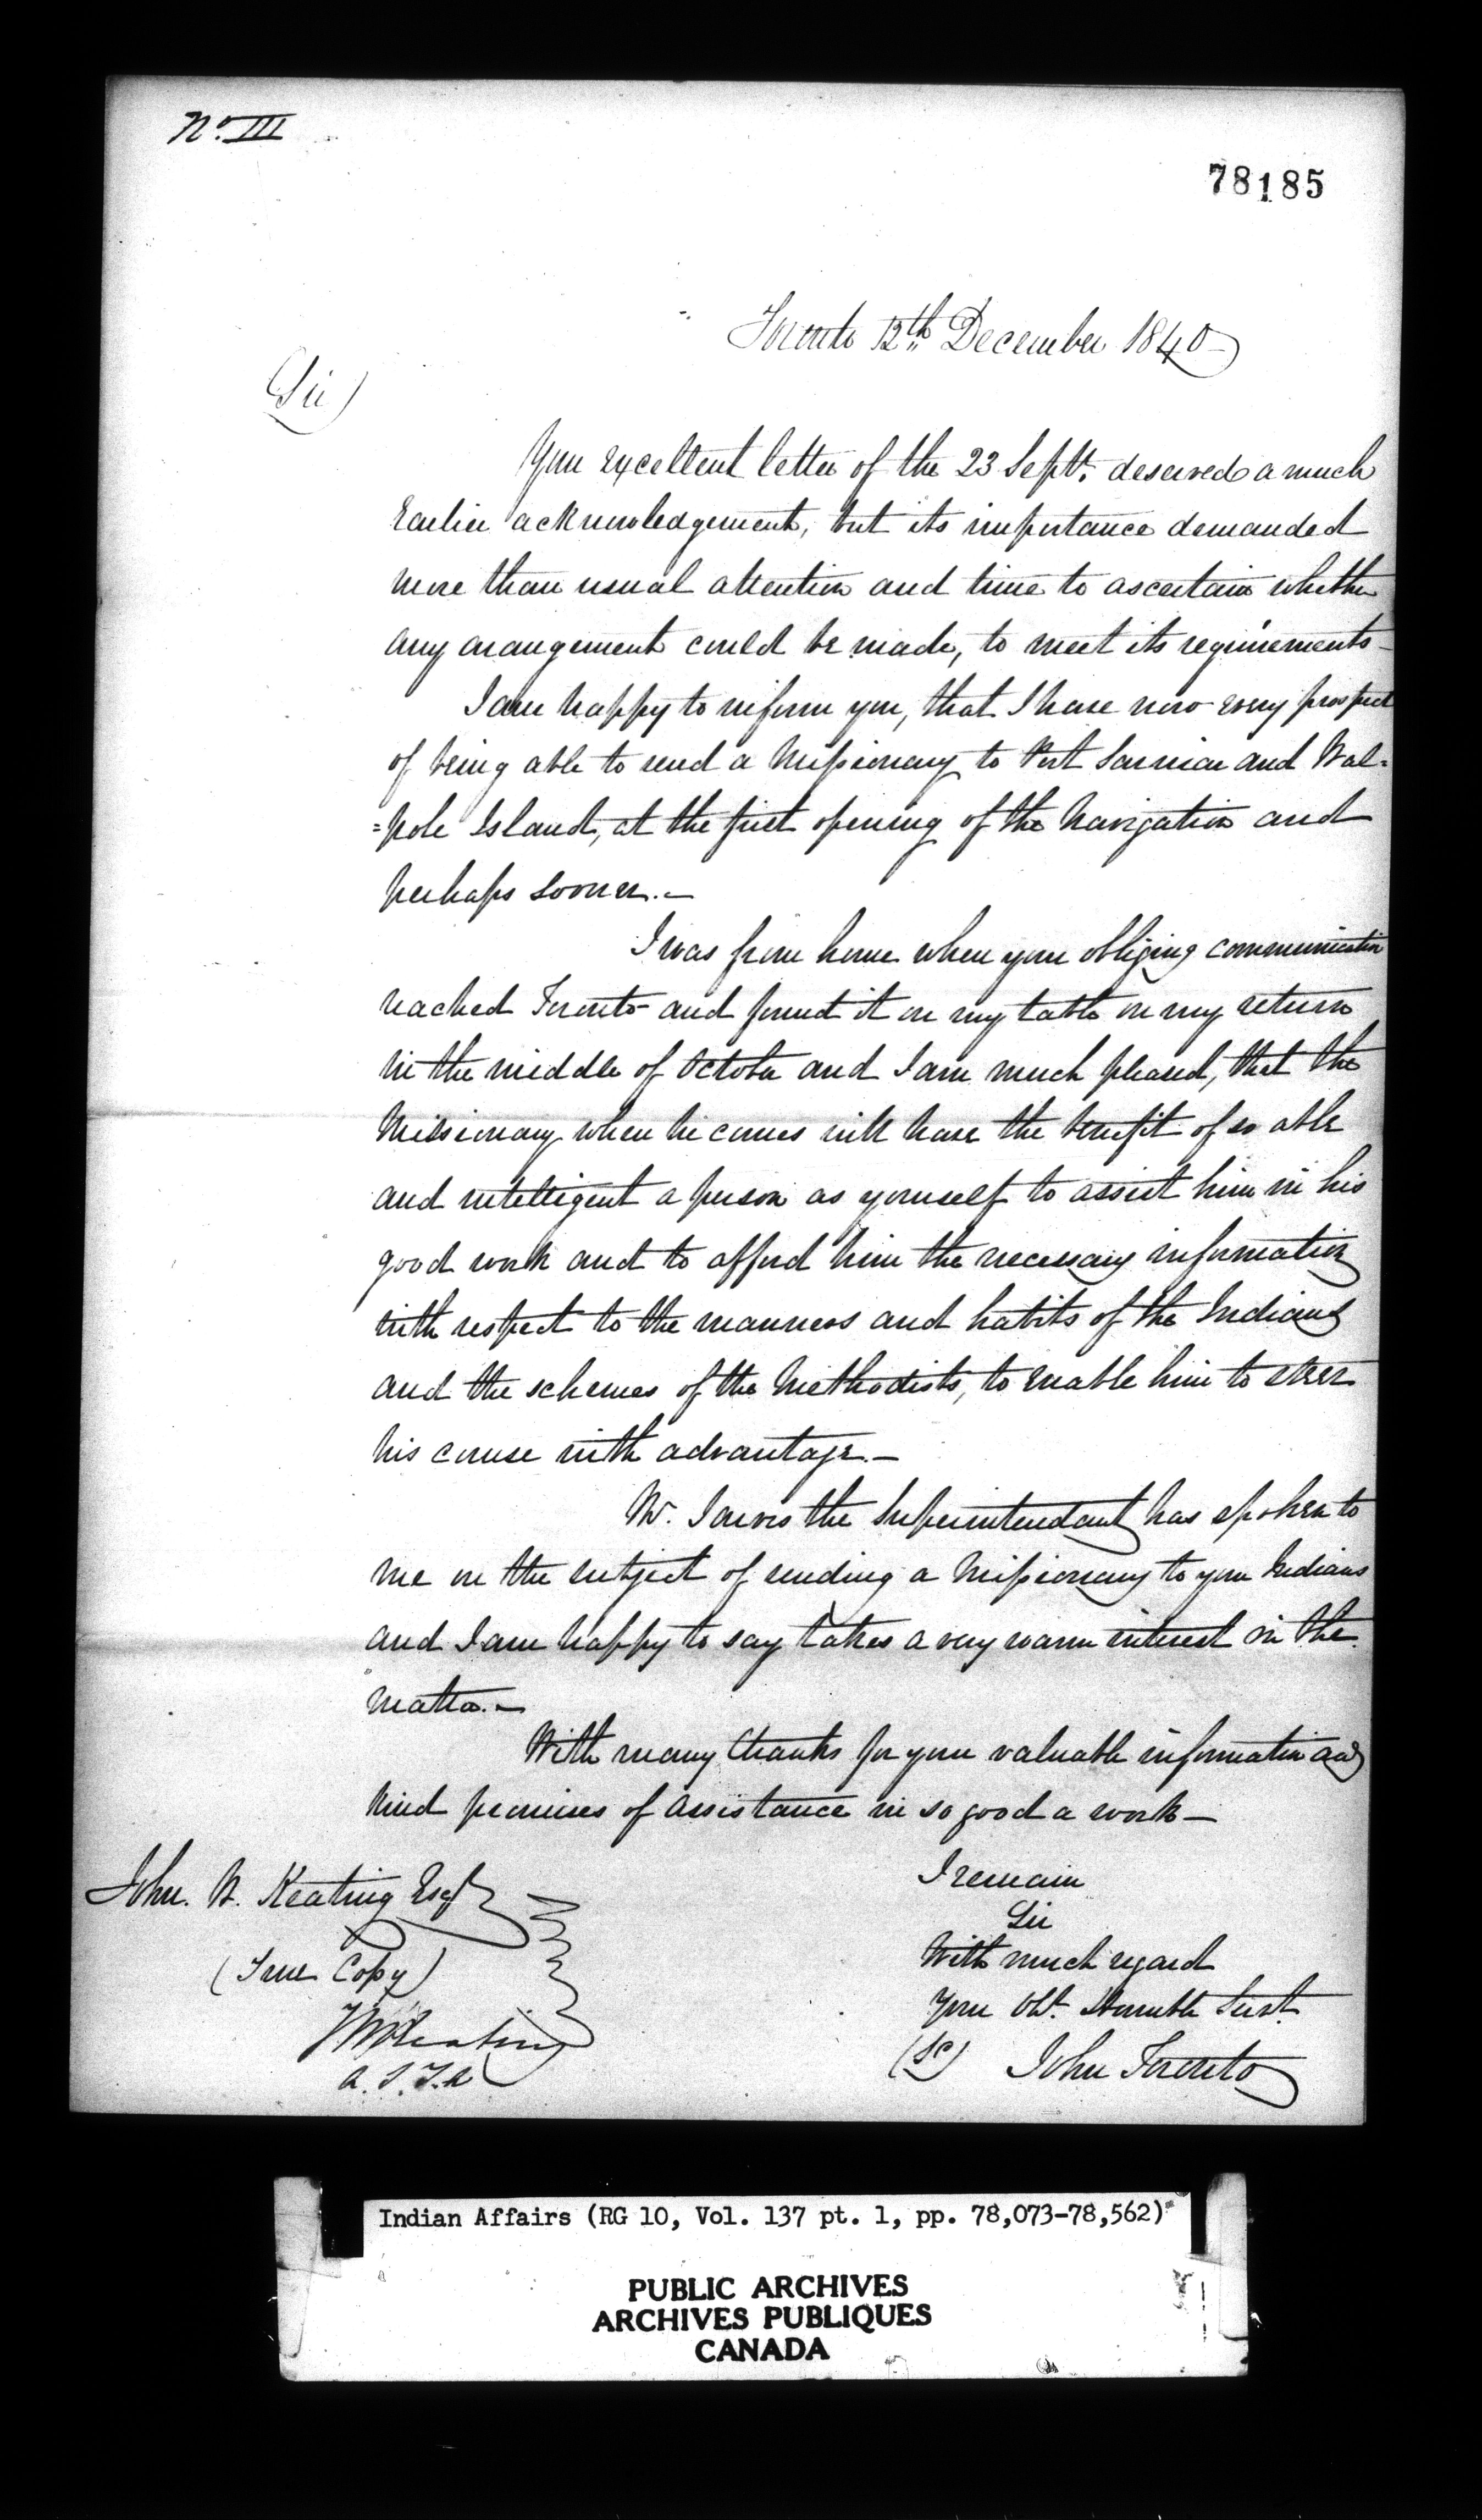 No. III
78185
Toronto 12th December 1840
Sir
Your Excellent letter of the 23 Septr. deserved a much
Earlier acknowledgement, but its importance demanded
more than usual attention and time to ascertain whether
any arangement could be made, to meet its requirements-
I am happy to inform you, that I have now every prospect
of being able to send a Missionary to Port Sarnia and Wal-
=pole Island, at the first opening of the Navigation and
perhaps sooner.-
I was from home when your obliging communication
reached Toronto and found it on my table on my return
in the middle of October and I am much pleased, that the
Missionary when he comes will have the benefit of so able
and intelligent a person as yourself to assist him in his
good work and to afford him the necessary information
with respect to the manners and habits of the Indians
and the schemes of the Methodists, to enable him to steer
his course with advantage.-
Mr. Jarvis the Superintendant has spoken to
me on the subject of sending a Missionary to your Indians
and I am happy to say takes a very warm interest in the
matter.-
With many thanks for your valuable information and
kind promises of assistance in so good a work-
I remain
Sir
With much regard
Your Obt. Humble Servt.
John Toronto
John. W. Keating Esqr
(True Copy)
JWKeating
A. S. I. A
Indian Affairs (RG 10, Vol. 137 pt. 1, pp. 78,073-78,562)
PUBLIC ARCHIVES
ARCHIVES PUBLIQUES
CANADA